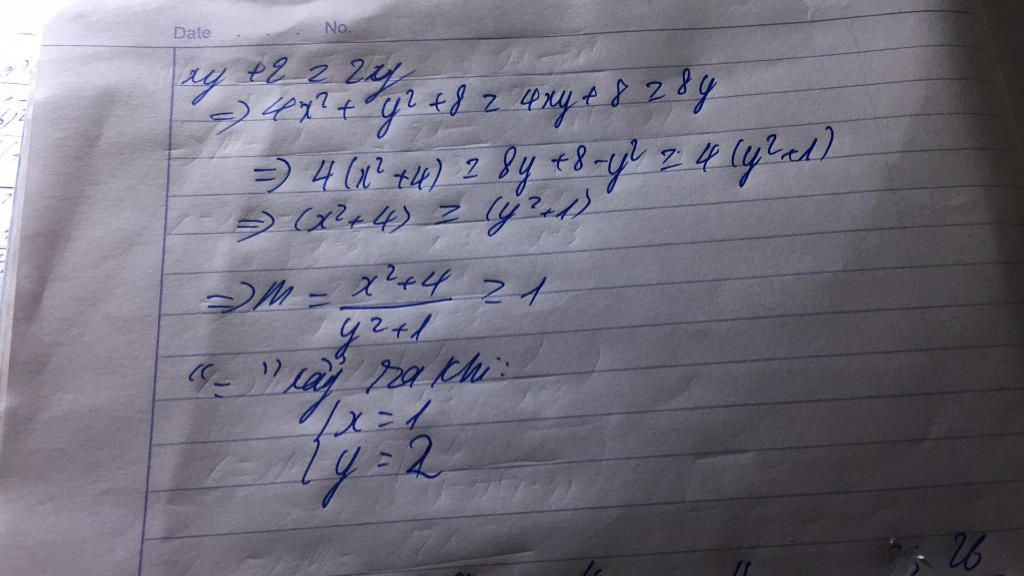 Date . . . . No.
xy + 2 ≥ 2xy
=> 4x² + y² + 8 ≥ 4xy + 8 ≥ 8y
=> 4(x² + 4) ≥ 8y + 8 - y² ≥ 4(y² + 1)
=> (x² + 4) ≥ (y² + 1)
=> M = \frac{x² + 4}{y² + 1} ≥ 1
"=" xảy ra khi:
{x = 1
{y = 2
26